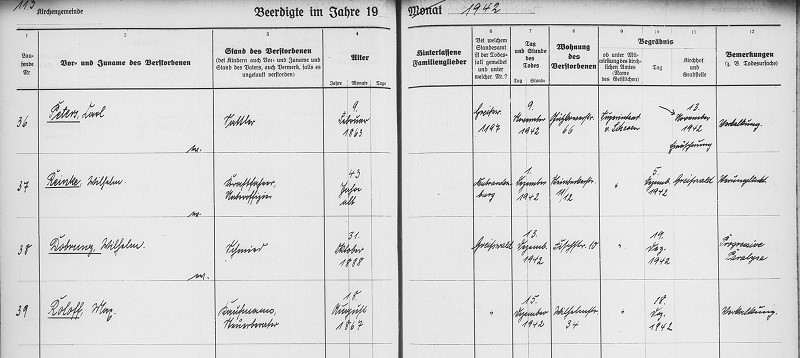 113 Kirchengemeinde
Beerdigte im Jahre 19
Monat 1942
1 2 3 4 6 7 8 9 10 11 12
Lau-
fende
Nr.
Vor- und Zuname des Verstorbenen
Stand des Verstorbenen
(bei Kindern auch Vor- und Zuname und
Stand des Vaters, auch Vermerk, falls es
ungetauft verstorben)
Alter
Jahre Monate Tage
Hinterlassene
Familienglieder
Bei welchem
Standesamt
ist der Todes-
fall gemeldet
und unter
welcher Nr.?
Tag
und Stunde
des
Todes
Tag Stunde
Wohnung
des
Verstorbenen
Begräbnis
ob unter Mit-
wirkung des kirch-
lichen Amtes
(Name
des Geistlichen)
Tag
Kirchhof
und
Grabstelle
Bemerkungen
(z. B. Todesursache)
36
Peters, Carl
Sattler
9.
Februar
1863
Greifsw.
1197
9.
November
1942
66
Superintendent
v. Scheven
13.
November
1942
Einäscherung
Verkalkung.
37
Reinke, Wilhelm.
Kraftfahrer,
43
Jahre
alt
Neubranden-
burg
1.
Dezember
1942
11/12
"
5.
Dezemb.
1942
Greifswald
Verunglückt.
38
Wilhelm.
Schmied
31.
Oktober
1888
Greifswald
13.
Dezemb.
1942
Fischstr. 10
"
19.
Dez.
1942
Progressive
Paralyse
39
Roloff, Max.
Kaufmann,
Steuerberater
18.
August
1867
"
15.
Dezember
1942
Wilhelmstr.
34
"
18.
Dez.
1942
Verkalkung.